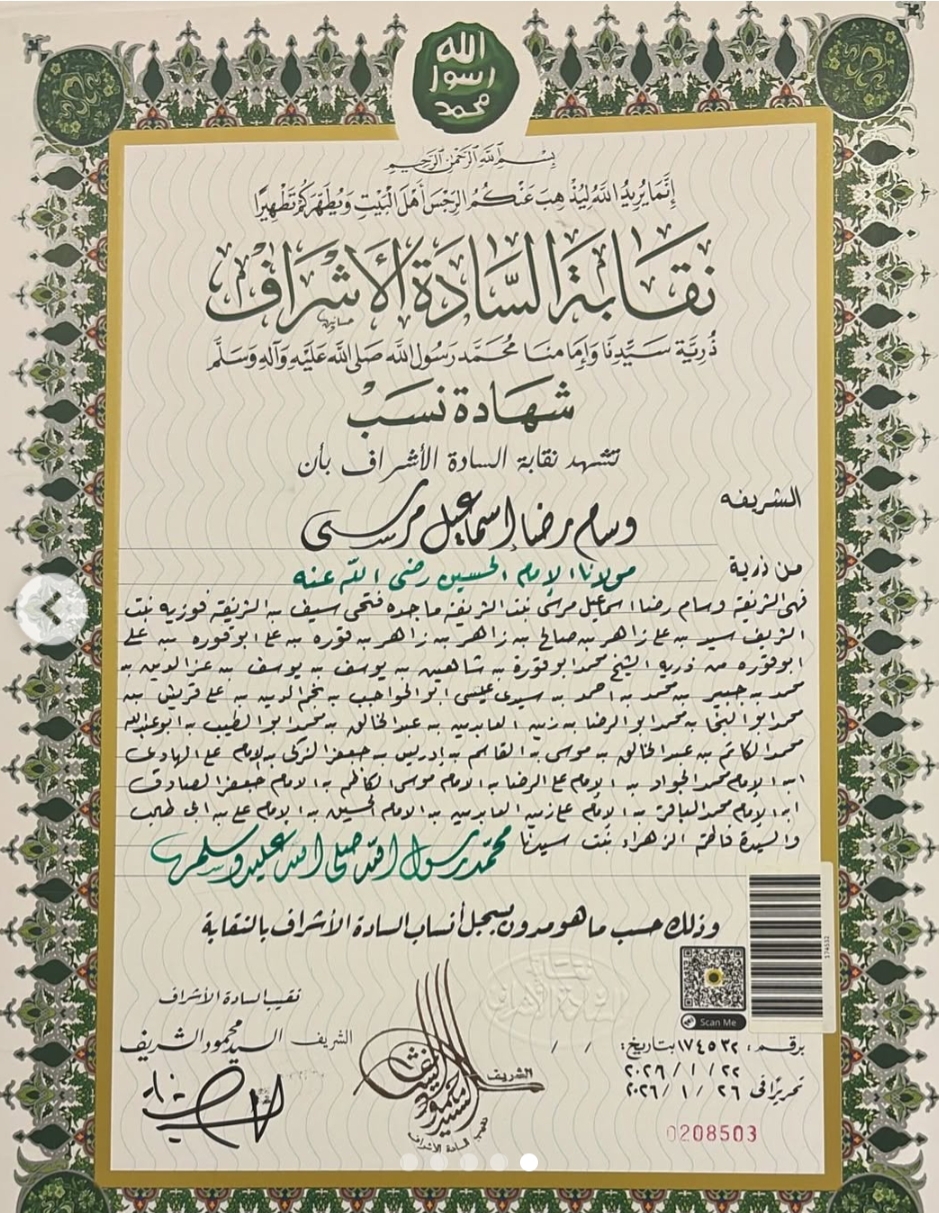 الله
رسول
محمد
بسم الله الرحمن الرحيم
إنما يريد الله ليذهب عنكم الرجس أهل البيت ويطهركم تطهيرا
نقابة السادة الأشراف
ذرية سيدنا وإمامنا محمد رسول الله صلى الله عليه وآله وسلم
شهادة نسب
تشهد نقابة السادة الأشراف بأن
الشريفه وسام رضا إسماعيل مرسى
من ذرية مولانا الإمام الحسين رضى الله عنه
فهى الشريفة وسام رضا اسماعيل مرسى بنت الشريفة ماجده فتحى سيف بنت الشريفة فوزيه بنت
الشريف سيد بن على زاهر بن صالح بن زاهر بن زاهر بن قوره بن على ابوقوره بن على
ابوقوره من ذرية الشيخ محمد ابوقورة بن شاهين بن يوسف بن يوسف بن عز الدين بن
محمد بن جبير بن محمد بن احمد بن سيدى عيسى ابو المواجب بن نجم الدين بن على قريش بن
محمد ابو النجا بن محمد ابو الرضا بن زين العابدين بن عبد الخالق بن محمد ابو الطيب بن ابوعبدالله
محمد الكاتم بن عبد الخالق بن موسى بن القاسم بن إدريس بن جعفر الزكى بن الإمام على الهادى
ابن الإمام محمد الجواد بن الإمام على الرضا بن الامام موسى الكاظم بن الامام جعفر الصادق
ابن الإمام محمد الباقر بن الامام على زين العابدين بن الامام الحسين بن الامام على بن ابى طالب
والسيدة فاطمة الزهراء بنت سيدنا محمد رسول الله صلى الله عليه وسلم
وذلك حسب ما هو مدون بسجل أنساب السادة الأشراف بالنقابة
174532
Scan Me
نقيب السادة الأشراف
الشريف السيد محمود الشريف
الشريف
السيد محمود الشريف
نقيب السادة الأشراف
برقم: ١٧٤٥٣٢ بتاريخ: / /
٢٠٢٦/١/٢٢
تحريرًا فى ٢٦ /١ /٢٠٢٦
0208503